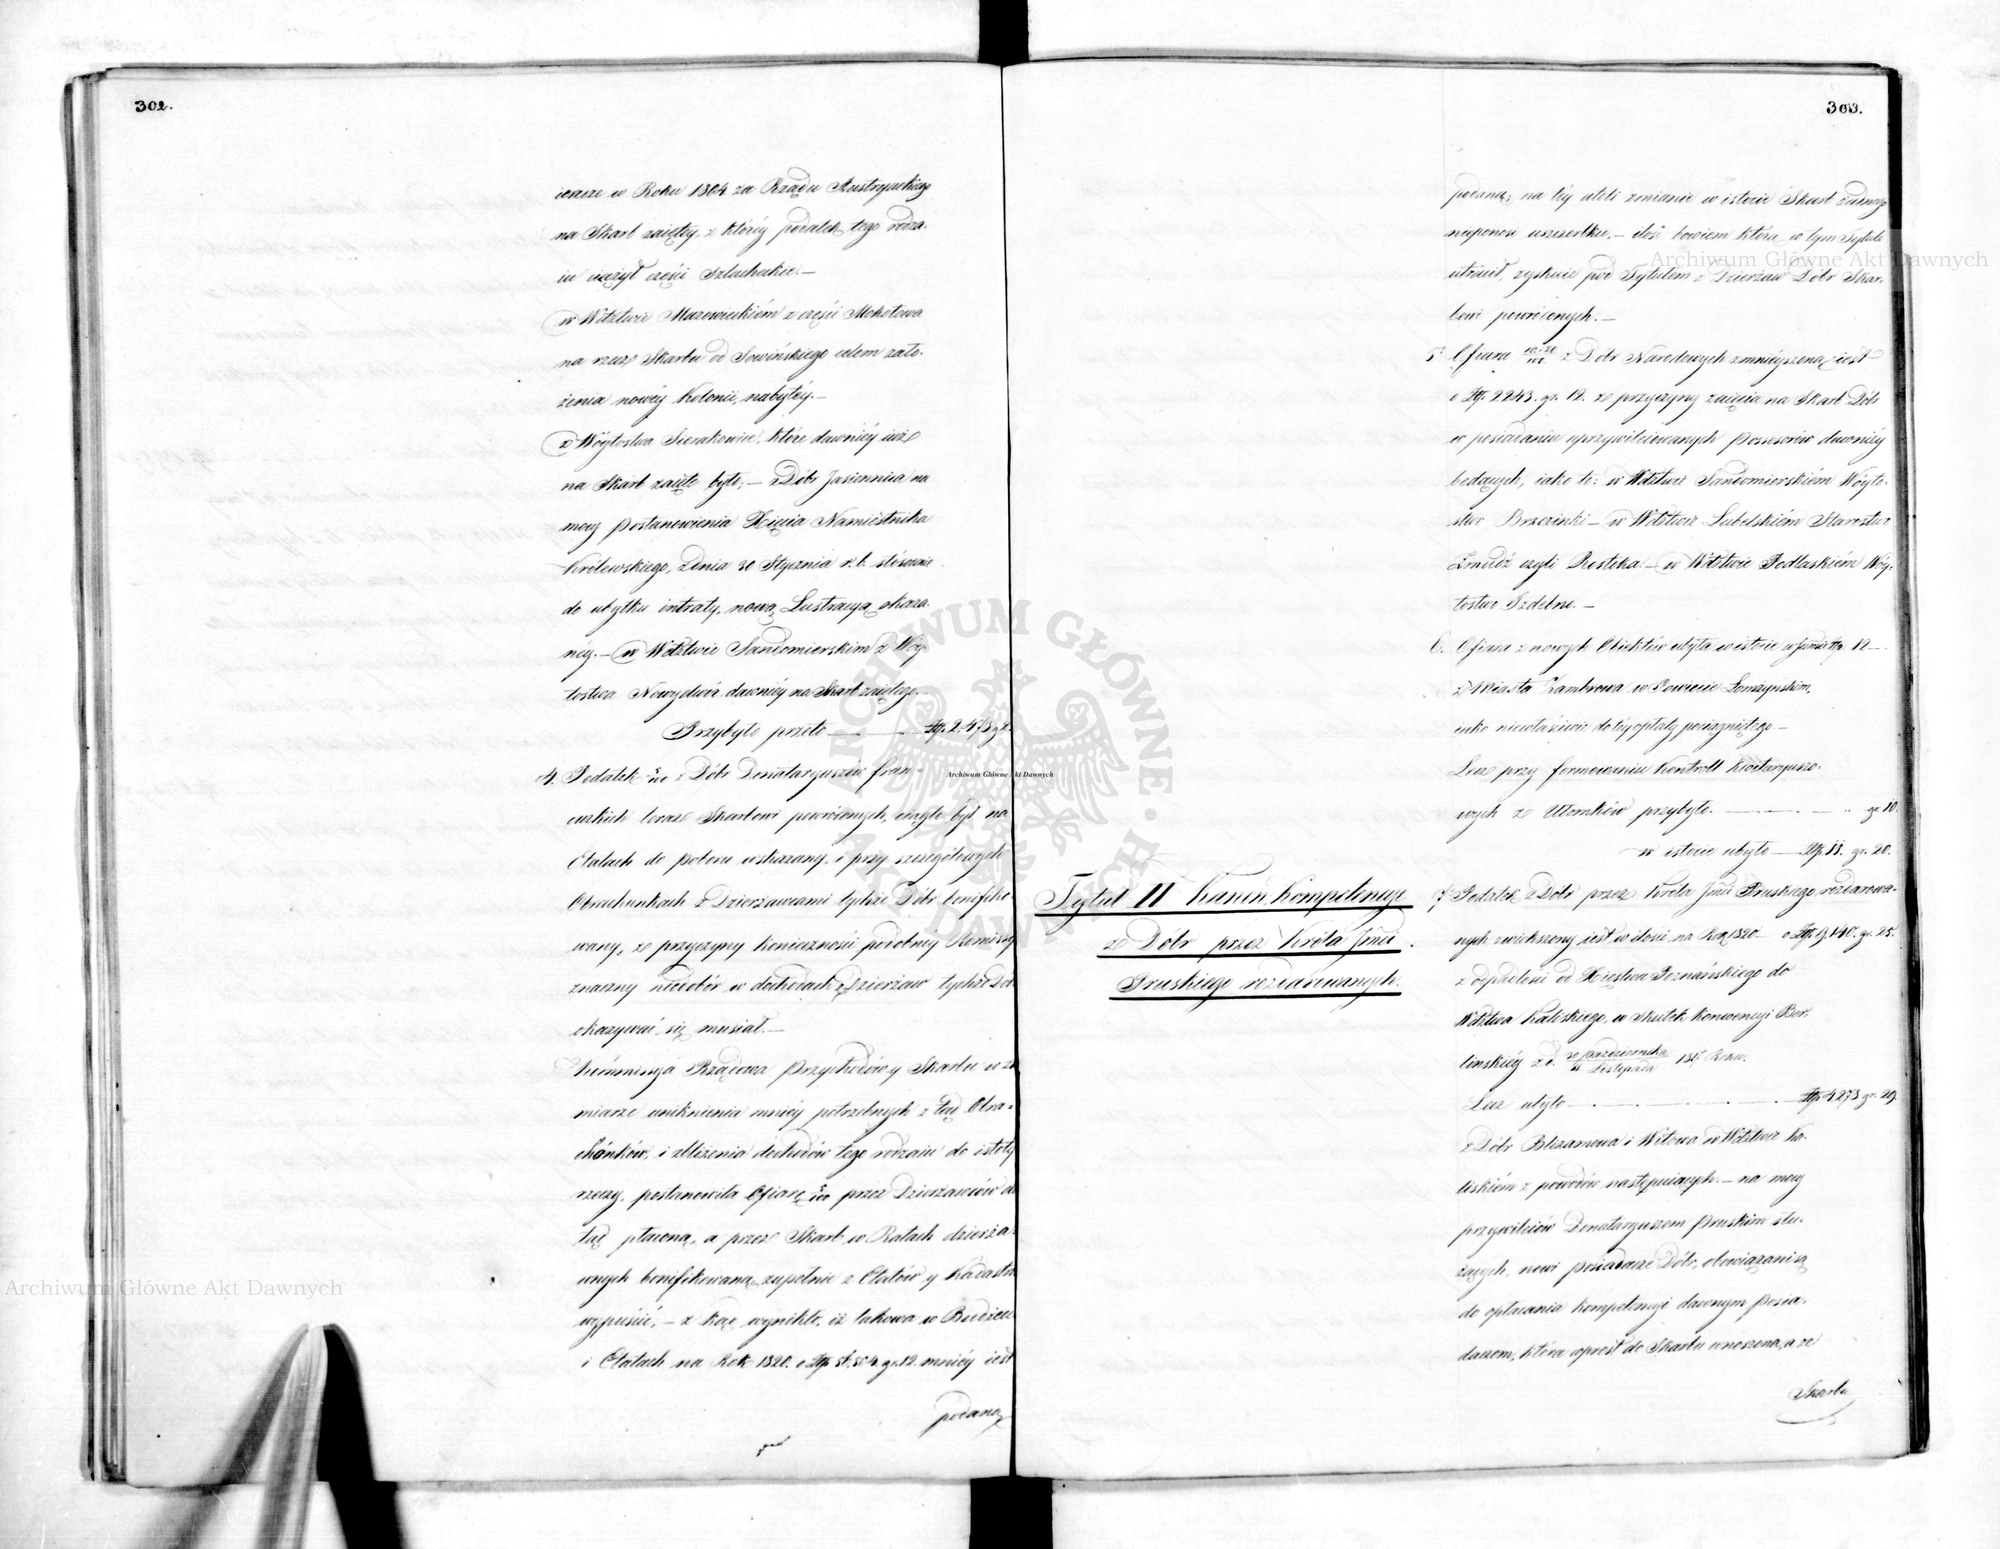 302.
ieszcze w Roku 1804 za Rządu Austryackiego
na Skarb zaiętéy, z któréy podatek tego rodza-
iu ciążył części Szlacheckie. —
w Wdztwie Mazowieckiém z części Mokotowa
na rzecz Skarbu od Sowińskiego celem zało-
żenia nowéy Kolonii, nabytéy. —
z Wóytostwa Sierakowice, które dawniéy iuż
na Skarb zaięte było; — z Dóbr Jasiennica na
mocy Postanowienia Xięcia Namiestnika
Królewskiego, z dnia 30 Stycznia r. b. stósownie
do ubytku intraty, nową Lustracyą okaza-
néy. — w Wdztwie Sandomierskim z Wóy-
tostwa Nowydwór dawniéy na Skarb zaiętego. —
Przybyło przeto — — Złp. 2.473 g 2.
4. Podatek z Dóbr Donataryuszów fran-
cuzkich teraz Skarbowi powróconych, ciągle był na
Etatach do poboru wskazany, i przy szczegółowych
Obrachunkach z Dzierżawcami tychże Dóbr bonifiko-
wany, ze przyczyny konieczności podobnéy Remissy
znaczny niedobór w dochodach z Dzierżaw tychże Dób
okazywać się musiał. —
Kommissya Rządowa Przychodów y Skarbu w za
miarze uniknienia mniéy potrzebnych z tąd Obra-
chónków, i zbliżenia dochodów tego rodzaiu do istoty
rzeczy, postanowiła Ofiarę przez Dzierżawców do
tąd płaconą, a przez Skarb w Ratach dzierża-
wnych bonifikowaną, zupełnie z Etatów y Kadastru
wypuścić, — z kąd wynikło, iż takowa w Budżecie
i Etatach na Rok 1820. o Złp. gr. 12. mniéy iest
podaną
303.
podaną; na téy atoli zmianie w istocie Skarb żadnego
nieponosi uszczerbku, — ilość bowiem która w tym Tytule
utracił, zyskuie pod Tytułem z Dzierżaw Dóbr Skar-
bowi powróconych. —
5. Ofiara z Dóbr Narodowych zmnieyszoną iest
o Złp. 2243. gr. 12. ze przyczyny zaięcia na Skarb Dób
w posiadaniu uprzywileiowanych Possesorów dawniéy
będących, iako to: w Wdztwie Sandomierskiém Wóyto-
stwo Brzezinki — w Wdztwie Lubelskiém Starostwo
Żmudź czyli Rostoka. — w Wdztwie Podlaskiém Wóy-
tostwo Izdebno. —
6. Ofiara z nowych Obiektów ubyła w istocie w Złp. 12 —
z Miasta Zambrowa w Powiecie Łomżyńskim,
iako niewłaściwie do téy opłaty pociągniętego —
Lecz przy formowaniu Kontroll Kwitaryuszo-
wych z Ułomków przybyło. — — gr. 10.
w istocie ubyło — Złp. 11. gr. 20.
Tytuł II Kanon Kompetencyi
z Dóbr przez Króla Jmci
Pruskiego rozdarowanych.
7. Podatek z Dóbr przez Króla Jmci Pruskiego rozdarowa-
nych zwiększony iest w ilości na Rok 1820 — o Złp. 9,140. gr. 25.
z od Xięstwa Poznańskiego do
Wdztwa Kaliskiego, w skutek konwencyi Ber-
lińskiéy z d. 30 Października / 11 Listopada 181 Roku.
Lecz ubyło — — — Złp. 4273 gr. 29.
z Dóbr i Witowa w Wdztwie Ka-
liskiém z powodów następuiących. — na mocy
przywileiów Donataryuszom Pruskim słu-
żących, nowi Posiadacze Dóbr, obowiązani są
do opłacania kompetencyi dawnym Posia-
daczom, która wprost do Skarbu wnoszona, a ze
Skarbu
Archiwum Główne Akt Dawnych
Archiwum Główne Akt Dawnych
Archiwum Główne Akt Dawnych
ARCHIWUM GŁÓWNE AKT DAWNYCH